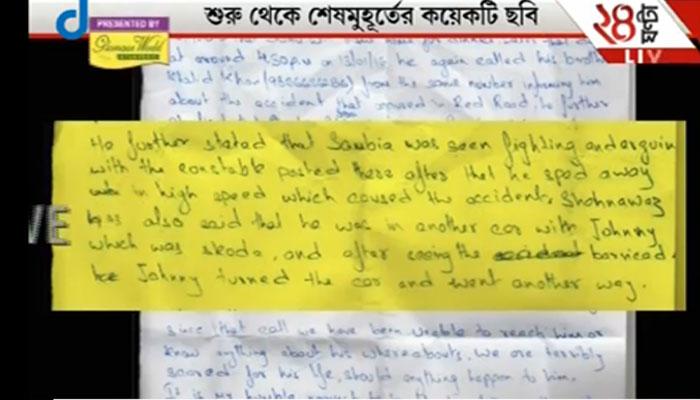 PRESENTED BY
Glamour World
AYURVEDIC
শুরু থেকে শেষমুহূর্তের কয়েকটি ছবি
২৪
ঘণ্টা
LIV
at around 4.50pm on 13/01/16 he again called his brothe
Khalid Khan from the same number informing him
about the accident that occured in Red Road, he further
He further stated that Sambia was seen fighting and arguin
with the constable posted there after that he sped away
in high speed which caused the accident. Shahnawaz
has also said that he was in another car with Johnny
which was skoda, and after seeing the accident barricad.
Johnny turned the car and went another way.
VE
since that call we have been unable to reach him or
know anything about his whereabouts. We are terribly
scared for his life, should anything happen to him.
It is my humble request